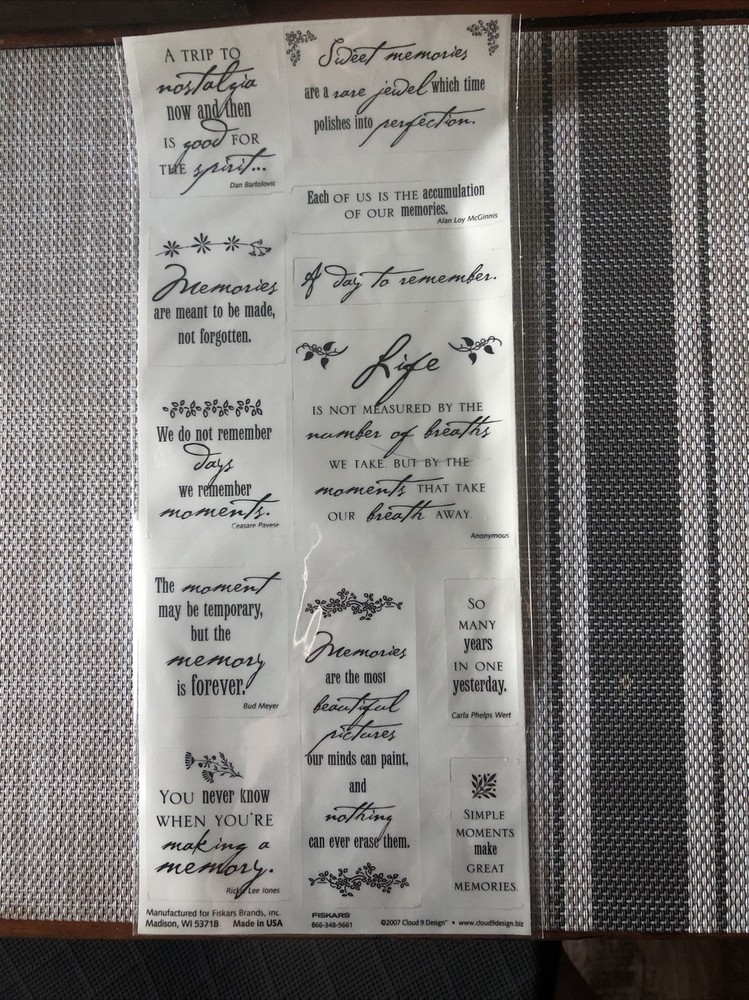 A TRIP TO
nostalgia
now and then
IS good FOR
THE spirit...
Dan Bartolovic
Sweet memories
are a rare jewel which time
polishes into perfection.
Each OF US IS THE accumulation
OF OUR memories.
Alan Loy McGinnis
A day to remember.
Memories
are meant to be made,
not forgotten.
Life
IS NOT MEASURED BY THE
number of breaths
WE TAKE. BUT BY THE
moments THAT TAKE
OUR breath AWAY.
Anonymous
We do not remember
days
we remember
moments.
Ceasare Pavese
The moment
may be temporary,
but the
memory
is forever.
Bud Meyer
Memories
are the most
beautiful
pictures
our minds can paint,
and
nothing
can ever erase them.
SO
MANY
years
IN ONE
yesterday.
Carla Phelps Wert
YOU never know
WHEN YOU'RE
making a
memory.
Rickie Lee Jones
SIMPLE
MOMENTS
make
GREAT
MEMORIES.
Manufactured for Fiskars Brands, Inc.
Madison, WI 53718 Made in USA
FISKARS
866-348-5661
©2007 Cloud 9 Design™ • www.cloud9design.biz